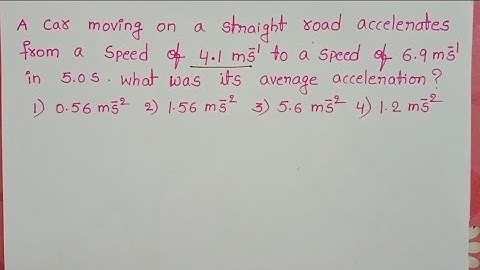 A car moving on a straight road accelerates
from a speed of 4.1 ms⁻¹ to a speed of 6.9 ms⁻¹
in 5.0 s. what was its average acceleration?
1) 0.56 ms⁻² 2) 1.56 ms⁻² 3) 5.6 ms⁻² 4) 1.2 ms⁻²